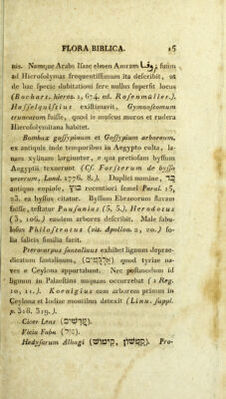 FLORA BIBLICA. 15
nis. Namque Arabs Isac ebnen Amram لوفا suum
ad Hierosolymas frequentissimum ita describit, ut
de hac specie dubitationi fere nullus supersit locus
(Bochart. hieroz. 1, 674. ed. Rosenmüller.).
Hasselquistius existimavit, Gymnostomum
truncatum fuisse, quod is muscus muros et rudera
Hierosolymitana habitet.
Bombax gossypinum et Gossypium arboreum,
ex antiquis inde temporibus in Aegypto culta, la-
nam xylinam largiuntur, e qua pretiosam byssum
Aegyptii texuerunt (Cf. Forsterum de bysso
veterum, Lond. 1776. 8.). Duplici nomine, בד
antiquo empioso, בוץ recentiori femel Paral. 15,
23. ea byssus citatur. Byssum Ebraeorum flavam
fuisse, testatur Pausanias (5, 5.). Herodotus
(3, 106.) eandem arborem describit. Male fabu-
losus Philostratus (vit. Apollon. 2, 20.) fo-
lia salicis similia facit.
Pterocarpus santalinus exhibet lignum deprae-
dicatum santalinum, (אלגמים) quod tyriae na-
ves e Ceylona apportabant. Nec postmodum id
lignum in Palaestina usquam occurrebat (1 Reg.
10, 11.). Koenigius eam arborem primum in
Ceylona et Indiae montibus detexit (Linn. suppl.
p. 318. 319.).
Cicer Lens (עדשים).
Vicia Faba (פול).
Hedysarum Alhagi (קמשון, קימוש). Pro-